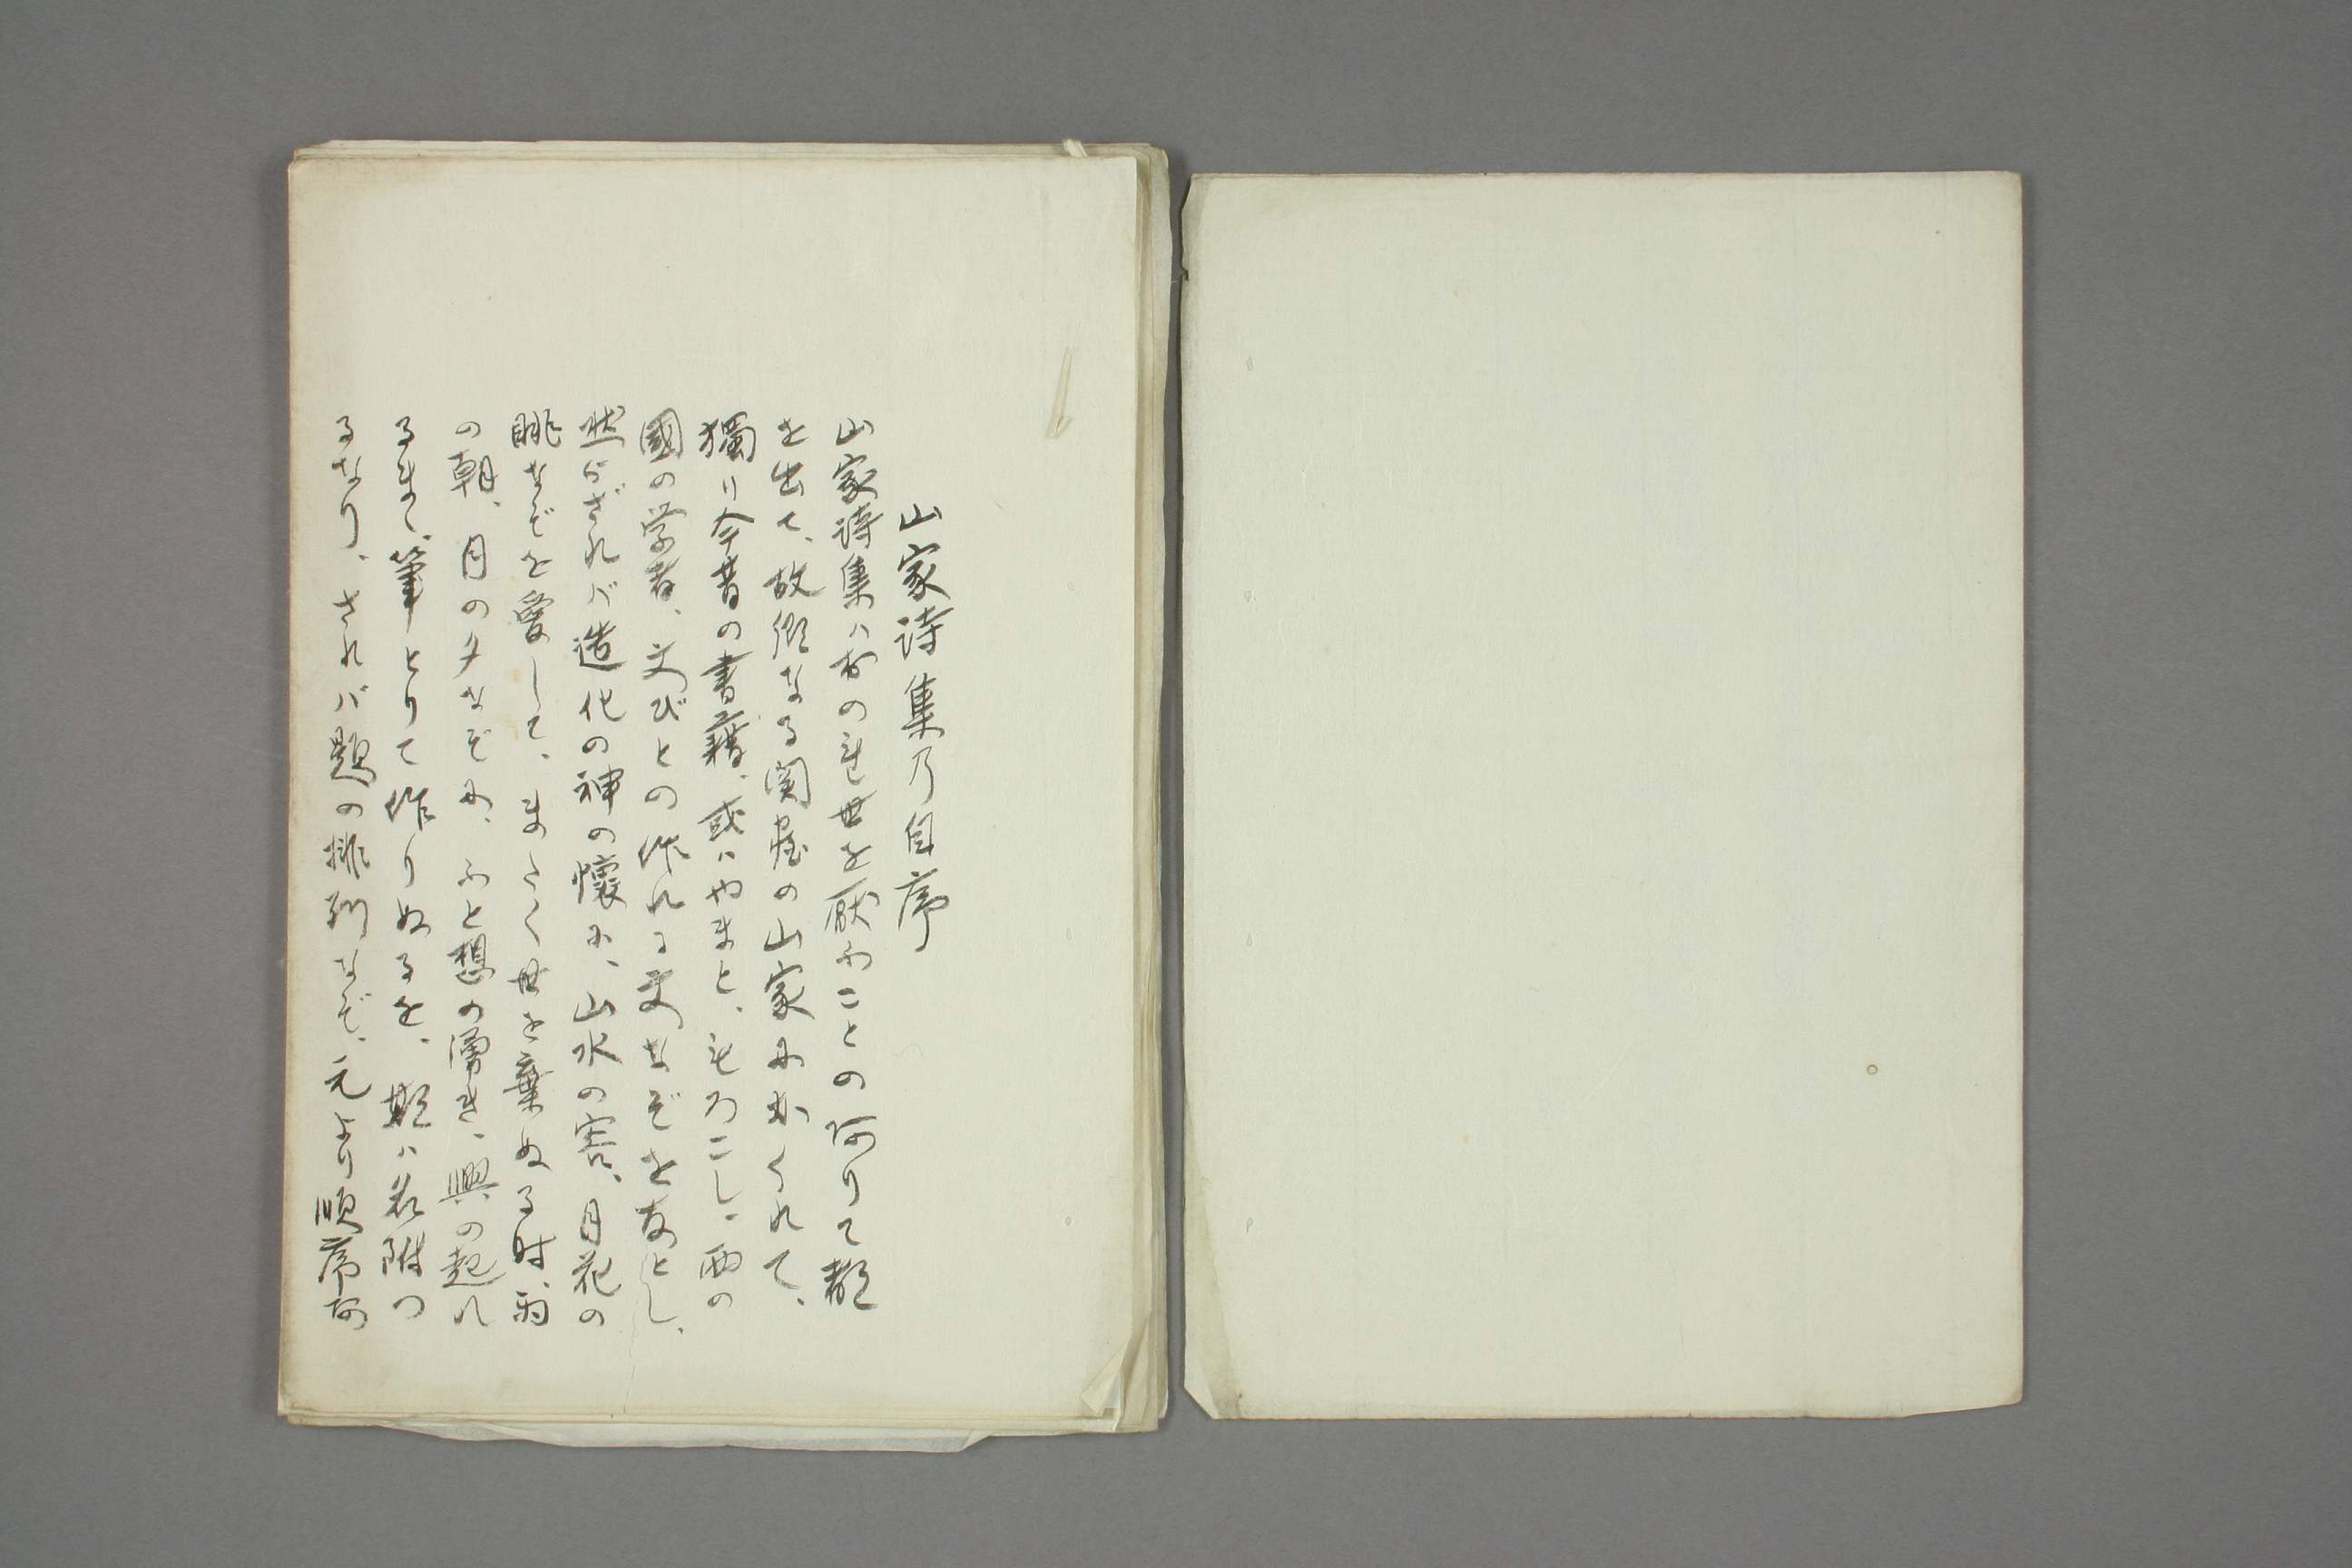 山家詩集乃自序
山家詩集ハおのれ世を厭ふことの阿りて都
を出て、故郷なる関屋の山家にかくれて、
獨り今昔の書籍、或ハやまと、もろこし、西の
國の学者、文びとの作れる文なぞを友とし、
然らざれバ造化の神の懐に、山水の害、月花の
眺なぞを愛して、またく世を棄ぬる时、雨
の朝、月の夕なぞに、ふと想の湧き、興の起れ
るまゝ、筆とりて作りぬるを、斯ハ名附つ
るなり、されバ題の排列なぞ、元より順序な